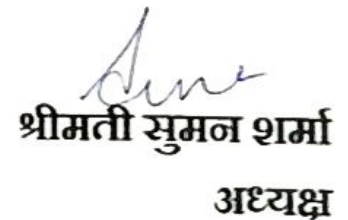 श्रीमती सुमन शर्मा
अध्यक्ष